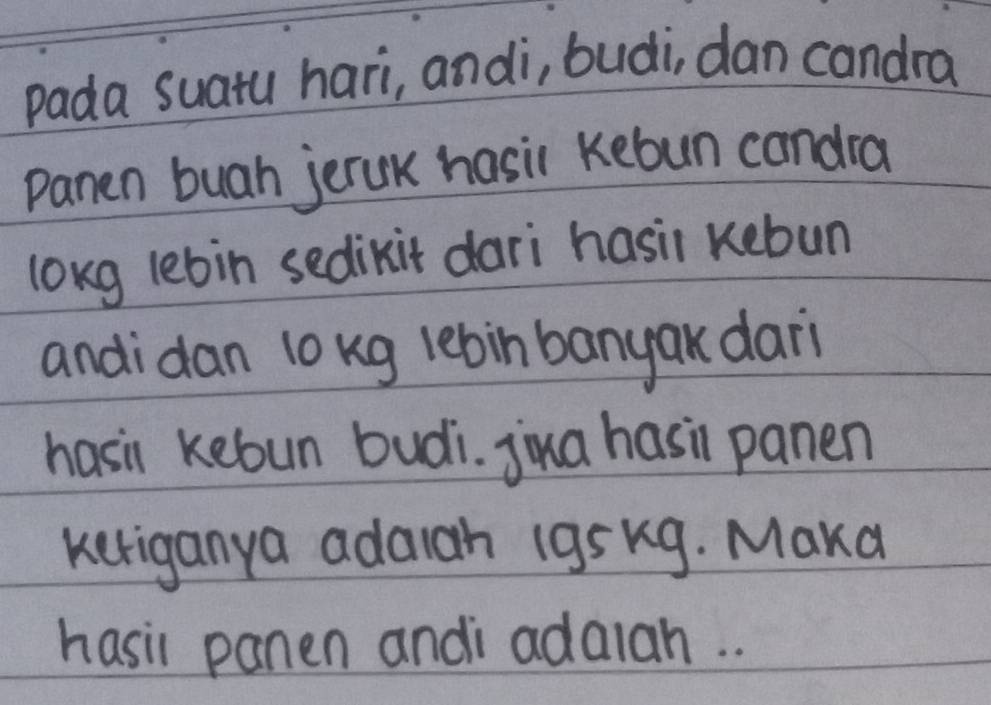 pada suatu hari, andi, budi, dan candra
panen buah jeruk hasil kebun candra
10kg lebih sedikit dari hasil kebun
andi dan 10 kg lebih banyak dari
hasil kebun budi. jika hasil panen
ketiganya adalah 195 kg. Maka
hasil panen andi adalah ..